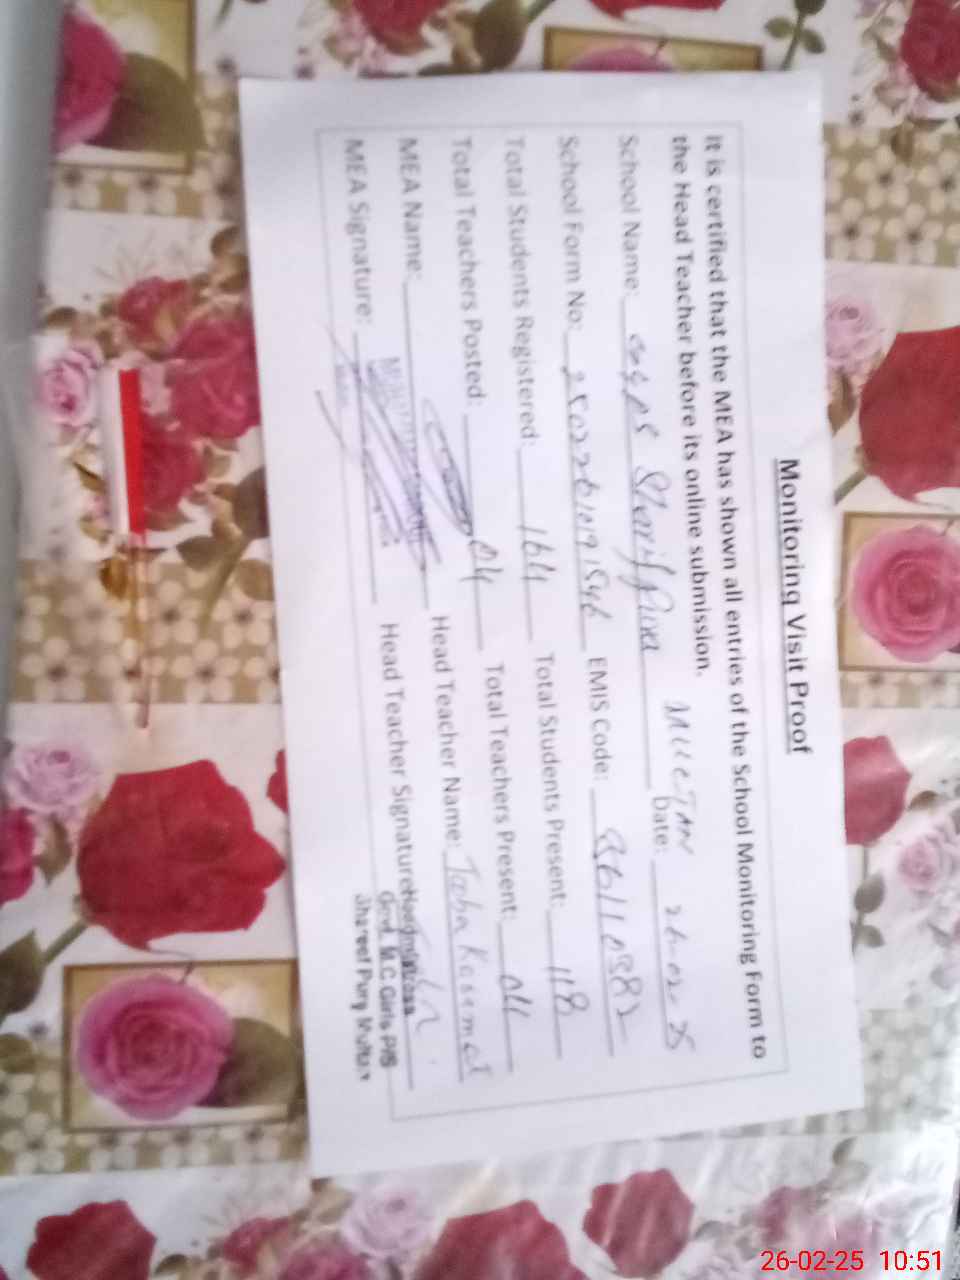 Monitoring Visit Proof
It is certified that the MEA has shown all entries of the School Monitoring Form to
the Head Teacher before its online submission.
School Name: MULTAN Date: 26-02-25
School Form No: EMIS Code:
Total Students Registered: 164 Total Students Present: 118
Total Teachers Posted: 04 Total Teachers Present: 04
MEA Name: Head Teacher Name:
MEA Signature: Head Teacher Signature: Headmistress
Govt. M.C Girls P/S
Shareef Pura Multan
26-02-25 10:51